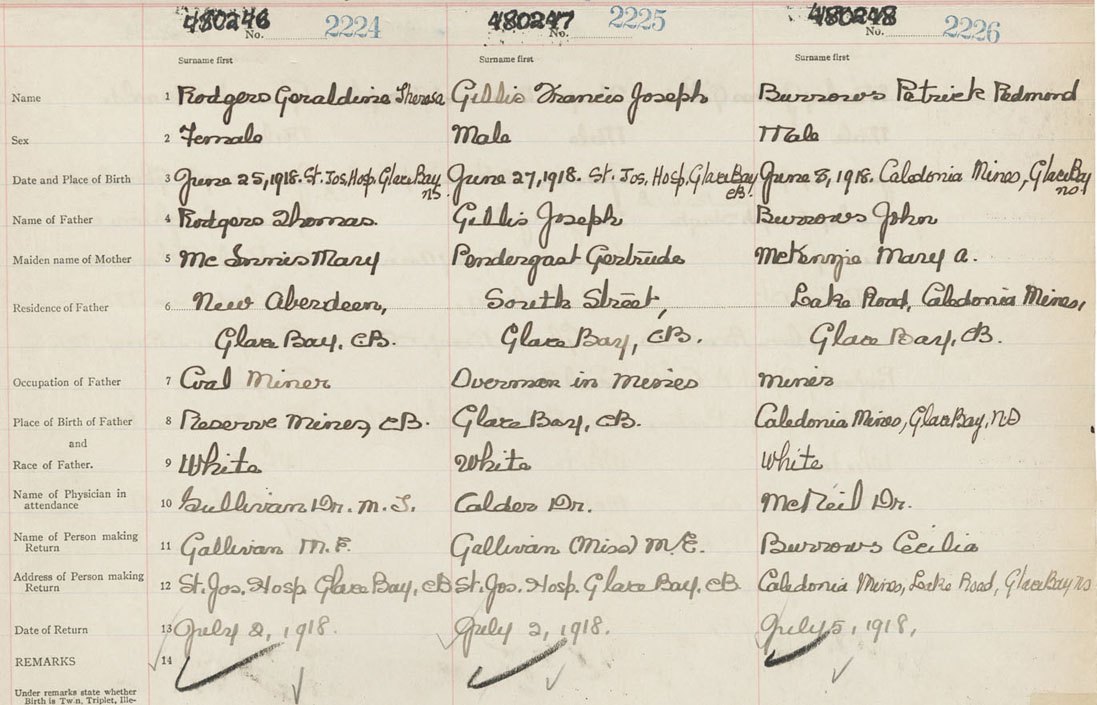 480246 480247 480248
No. 2224 No. 2225 No. 2226
Surname first Surname first Surname first
Name 1 Rodgers Geraldine Theresa Gillis Francis Joseph Burrows Patrick Redmond
Sex 2 Female Male Male
Date and Place of Birth 3 June 25, 1918. St. Jos. Hosp. Glace Bay NS June 27, 1918. St. Jos. Hosp. Glace Bay CB. June 8, 1918. Caledonia Mines, Glace Bay NS.
Name of Father 4 Rodgers Thomas. Gillis Joseph Burrows John
Maiden name of Mother 5 Mc Innis Mary Pendergast Gertrude McKenzie Mary A.
Residence of Father 6 New Aberdeen, South Street, Lake Road, Caledonia Mines,
Glace Bay, CB. Glace Bay, CB. Glace Bay, CB.
Occupation of Father 7 Coal Miner Overman in Mines Miner
Place of Birth of Father 8 Reserve Mines, CB. Glace Bay, CB. Caledonia Mines, Glace Bay, NS
and
Race of Father. 9 White White White
Name of Physician in
attendance 10 Sullivan Dr. M. S. Calder Dr. McNeil Dr.
Name of Person making
Return 11 Gallivan M. E. Gallivan (Miss) M. E. Burrows Cecilia
Address of Person making
Return 12 St. Jos. Hosp Glace Bay, CB St. Jos. Hosp. Glace Bay, CB Caledonia Mines, Lake Road, Glace Bay NS
Date of Return 13 July 2, 1918. July 2, 1918. July 5, 1918,
REMARKS 14
Under remarks state whether
Birth is Twin, Triplet, Ille-